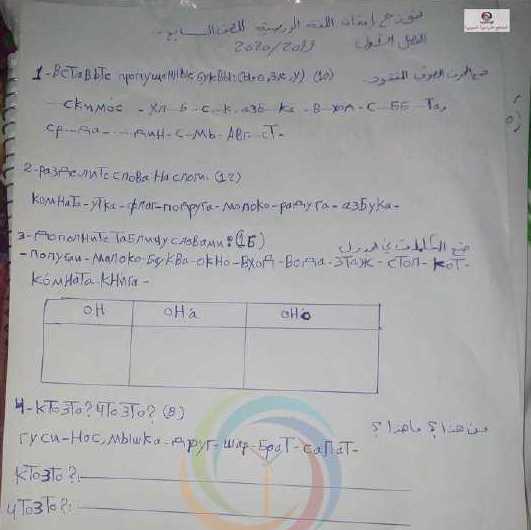 نموذج امتحان اللغة الروسية للصف السابع
الفصل الأول 2019/2020
1-ВСТаВЬТе пропущенные буквы: (10)
ضع الحرف المفقود
скимос - хл - Б - с - к - азб - ка - в - хол - с - ББ - Та,
ср - да - дин - с - мь - Авг - ст -
2-разделите слова на слоги. (12)
комната - утка - флаг - подруга - молоко - радуга - азбука -
3-дополните таблицу словами: (1Б)
ضع الكلمات في الجدول
- попугай - малоко - Буква - окно - Вход - Вода - этаж - стол - кот -
комната - книга -
он она оно
4-кто это? что это? (8)
من هذا؟ ما هذا؟
гуси - нос, мышка - друг - шар - брат - салат -
кто это?:
что это?: